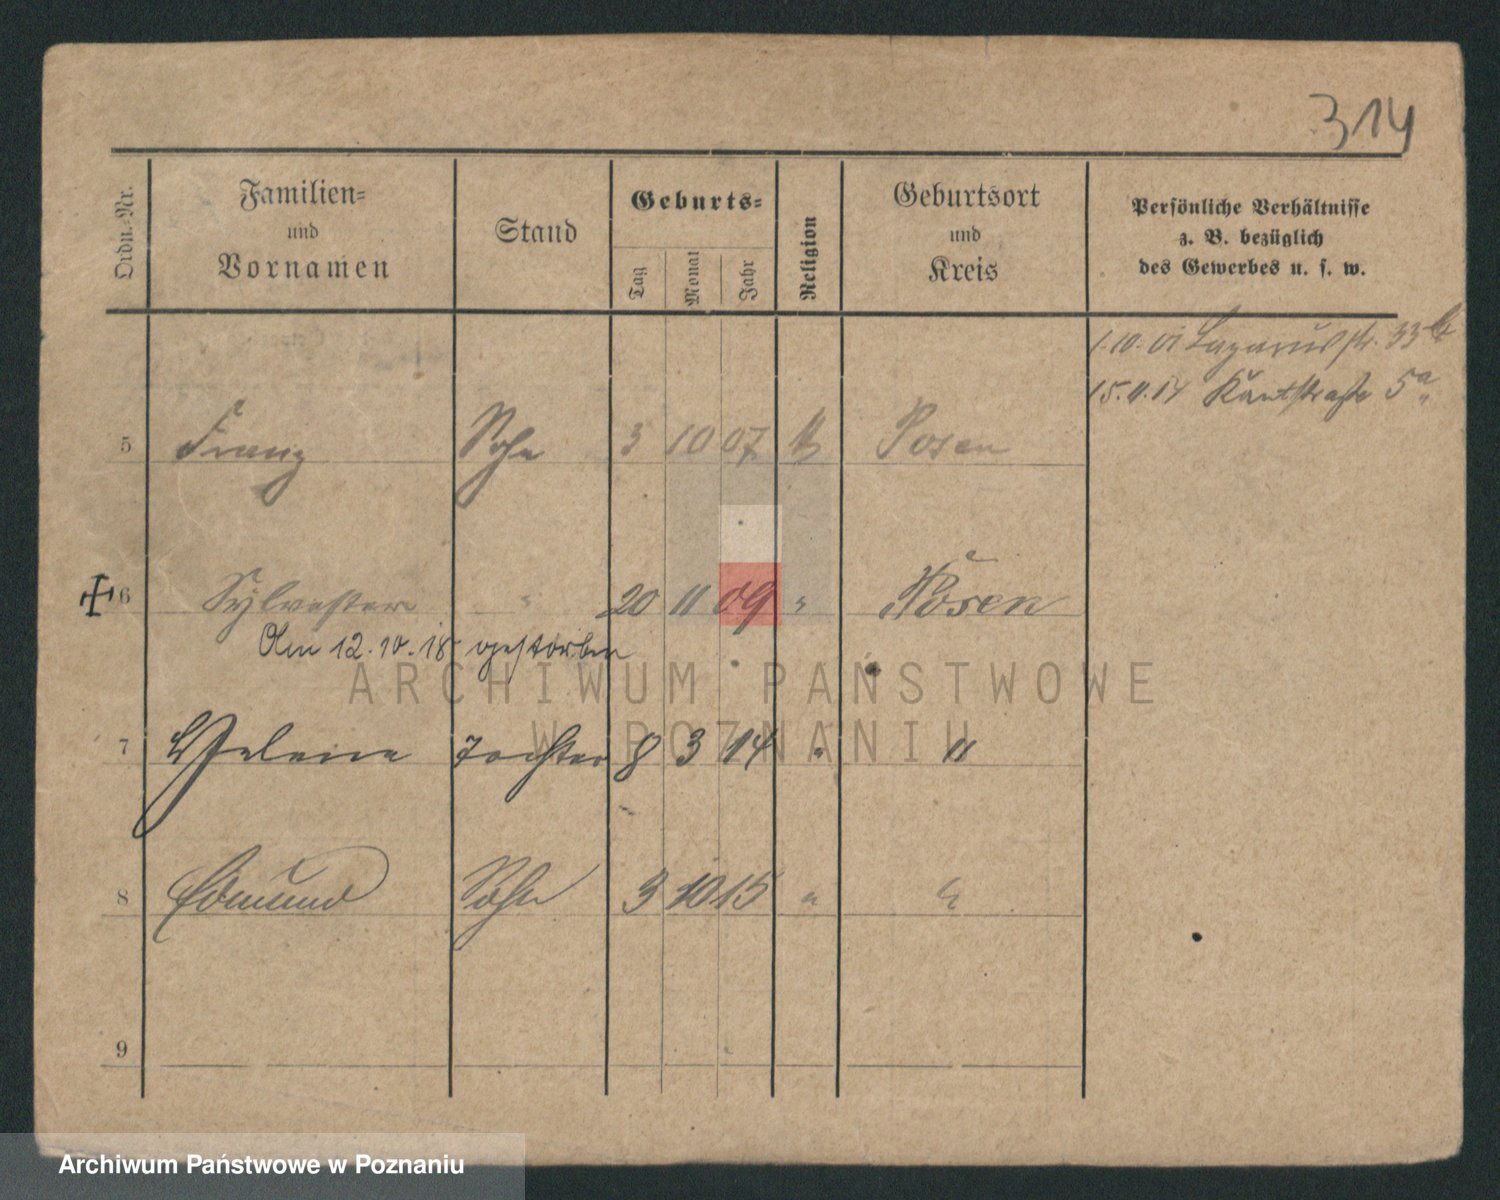 314
Ordn.-Nr.
Familien-
und
Vornamen
Stand
Geburts-
Tag
Monat
Jahr
Religion
Geburtsort
und
Kreis
Persönliche Verhältnisse
z. B. bezüglich
des Gewerbes u. s. w.
1.10.01 Lazarusstr. 33b
15.4.14 Kantstraße 5a
5 Franz Sohn 3 10 07 k Posen
6 Sylvester " 20 11 09 " Posen
Am 12.10.18 gestorben
ARCHIWUM PAŃSTWOWE
W POZNANIU
7 Helene Tochter 8 3 14 " "
8 Edmund Sohn 3 10 15 " "
9
Archiwum Państwowe w Poznaniu